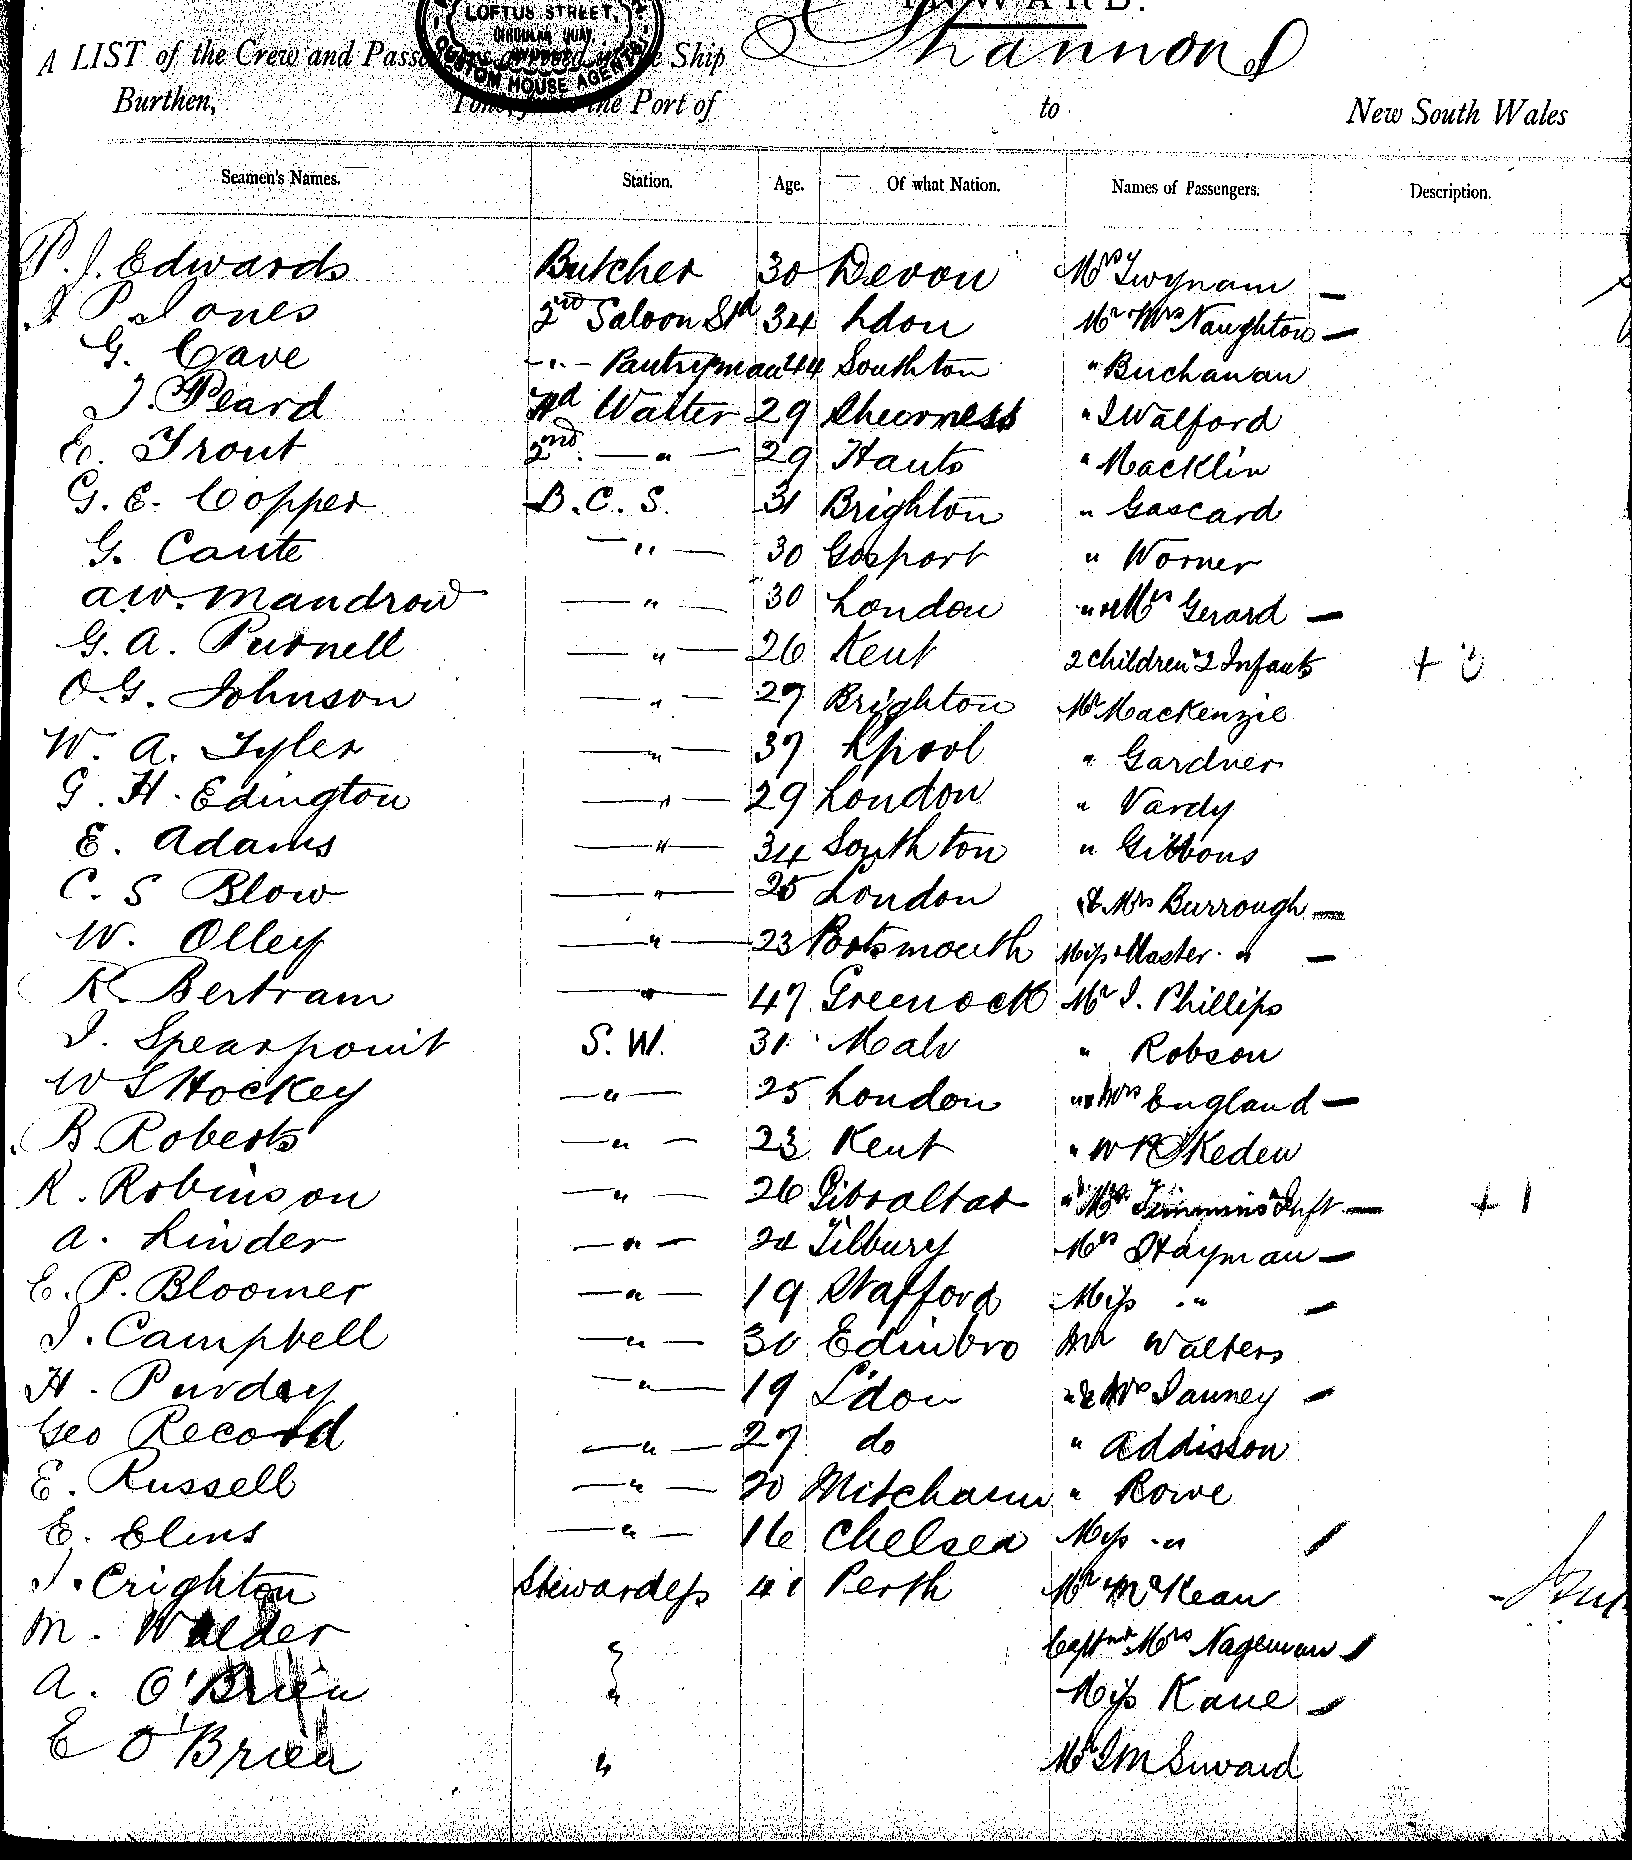 INWARD.
LOFTUS STREET,
CIRCULAR QUAY,
CUSTOM HOUSE AGENT
A LIST of the Crew and Passengers arrived in the Ship Shannon of
Burthen, the Port of to New South Wales
Seamen's Names. Station. Age. Of what Nation. Names of Passengers. Description.
P. J. Edwards Butcher 30 Devon Mrs Twynam —
J P Jones 2nd Saloon Std 34 Ldon Mr & Mrs Naughton —
G. Cave -"- Pantryman 44 Southton " Buchanan
J. Peard Hd Waiter 29 Sheerness " J Walford
E. Trout 2nd — " — 29 Hants " Macklin
G. E. Copper B. C. S. 31 Brighton " Gascard
G. Caute — " — 30 Gosport " Worner
A.W. Mandrow — " — 30 London " & Mrs Gerard —
G. A. Purnell — " — 26 Kent 2 Children & 2 Infants +
O. G. Johnson — " — 27 Brighton Mr Mackenzie
W. A. Tyler — " — 37 Lpool " Gardner
G. H. Edington — " — 29 London " Vardy
E. Adams — " — 34 Southton " Gibbons
C. S Blow — " — 25 London " & Mrs Burrough —
W. Olley — " — 23 Portsmouth Miss & Master " —
R. Bertram — " — 47 Greenock Mr J. Phillips
J. Spearpoint S. W. 31 " Robson
W S Hockey — " — 25 London " & Mrs England —
B Roberts — " — 23 Kent " W R Skeden
R. Robinson — " — 26 Gibraltar " & Mrs Timmins & Inft — + 1
A. Linder — " — 24 Tilbury Mrs Hayman —
E. P. Bloomer — " — 19 Stafford Miss " —
J. Campbell — " — 30 Edinbro Mr Walters
H. Purdey — " — 19 L'don " & Mrs Janney —
Geo Record — " — 27 do " Addisson
E. Russell — " — 20 Mitcham " Rowe
E. Elms — " — 16 Chelsea Miss "
J. Crighton Stewardess 41 Perth Mr McKean
M. Walder " Capt and Mrs Nageman
A. O'Brien " Miss Kane
E O'Brien " Mr J M